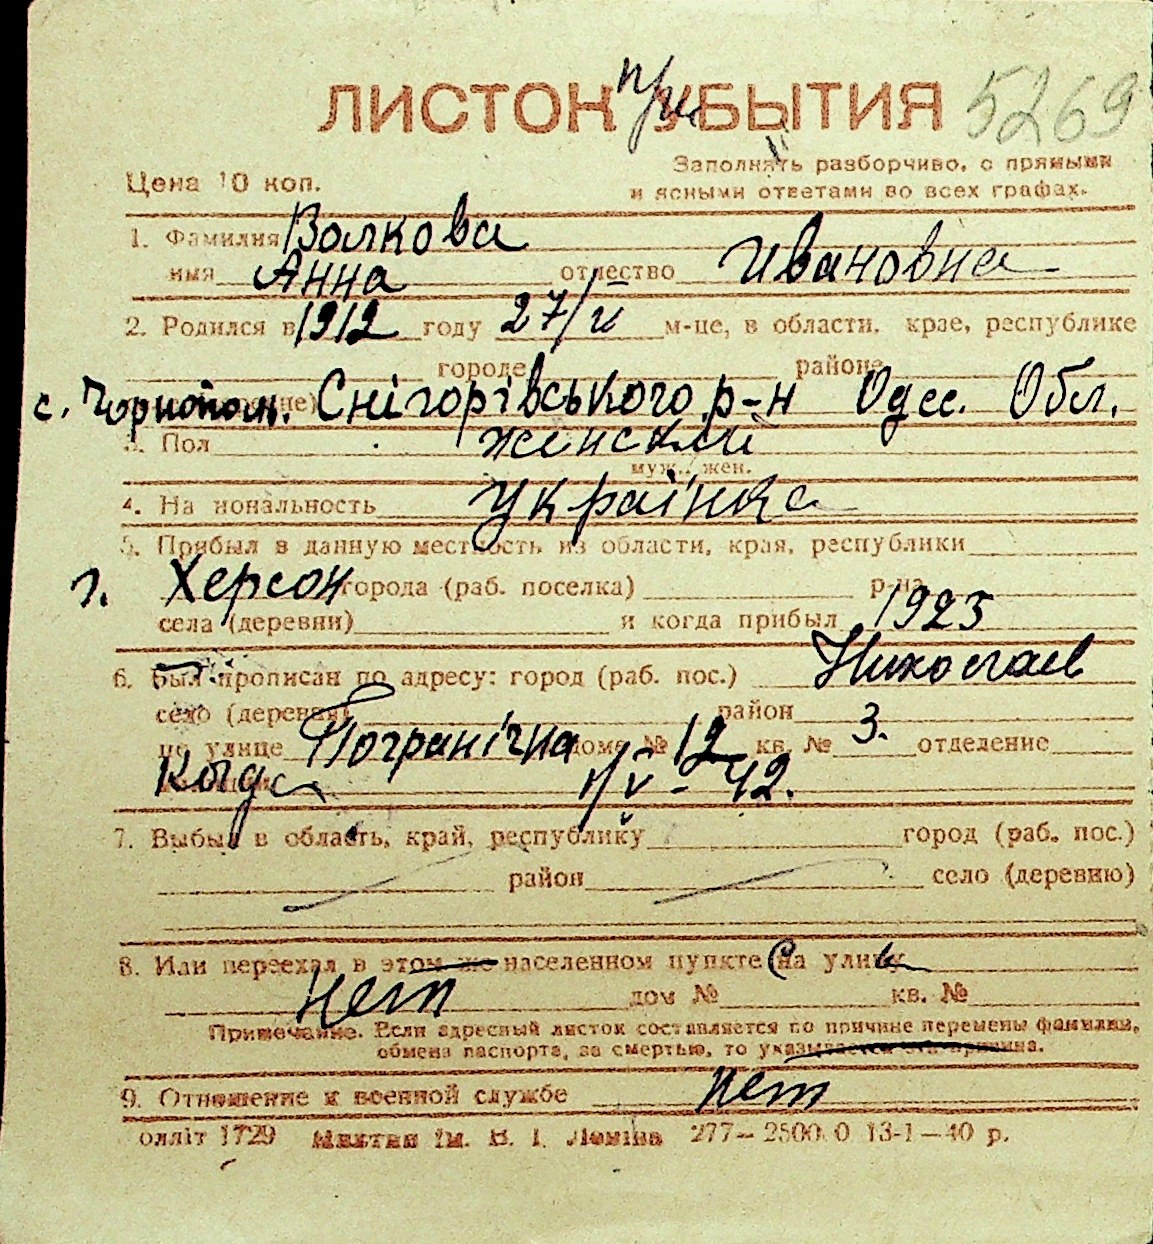 ЛИСТОК при УБЫТИЯ 5269
Заполнять разборчиво, с прямыми
Цена 10 коп.
и ясными ответами во всех графах.
1. Фамилия Волкова
имя Анна отчество Ивановна
2. Родился в 1912 году 27/II м-це, в области, крае, республике
городе районе
с. Снігорівського р-н Одес. Обл.
3. Пол женский
муж., жен.
4. Национальность українка
5. Прибыл в данную местность из области, края, республики
г. Херсон города (раб. поселка) р-на
села (деревни) и когда прибыл 1923
6. Был прописан по адресу: город (раб. пос.) Николаев
село (деревня) район
по улице Погранічна доме № 12 кв. № 3. отделение
милиции Когда 1/V - 42.
7. Выбыл в область, край, республику город (раб. пос.)
район село (деревню)
8. Или переехал в этом же населенном пункте на улицу
нет дом № кв. №
Примечание. Если адресный листок составляется по причине перемены фамилии,
обмена паспорта, за смертью, то указывается эта причина.
9. Отношение к военной службе нет
олліт 1729 ім. В. І. Леніна 277—2500.0 13-1—40 р.